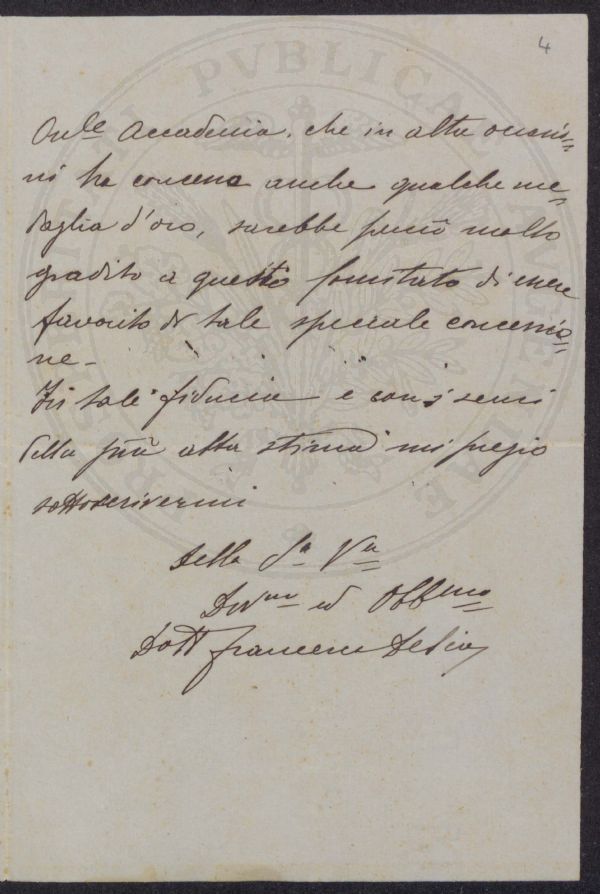 4
On.le Accademia, che in altre occasio=
ni ha concesso anche qualche me=
daglia d'oro, sarebbe perciò molto
gradito a questo Comitato di essere
favorito di tale speciale concessio=
ne.
In tale fiducia e con i sensi
della più alta stima mi pregio
sottoscrivermi
della S.a V.a
Dev.mo ed Obb.mo
Dott Francesco
PVBLICAE